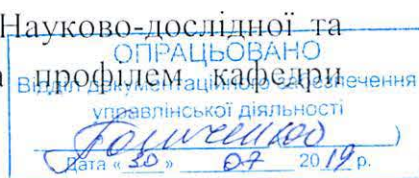 Науково-дослідної та
ОПРАЦЬОВАНО
профілем кафедри
Відділ документаційного забезпечення
управлінської діяльності
)
Дата « 30 » 07 2019 р.